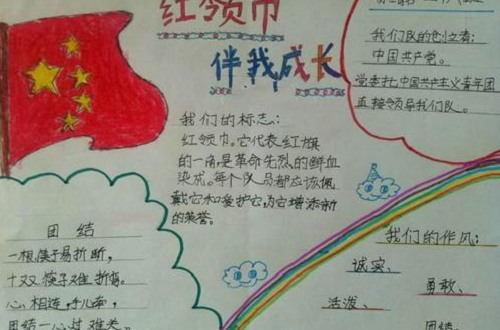 红领巾
伴我成长
我们队的创立者：
中国共产党。
党委托中国共产主义青年团
直接领导我们队。
我们的标志：
红领巾。它代表红旗
的一角，是革命先烈的鲜血
染成。每个队员都应该佩
戴它和爱护它，为它增添新
的荣誉。
团结
一根筷子易折断，
十双筷子难折弯。
心相连，手儿牵，
团结一心过难关。
我们的作风：
诚实、
勇敢、
活泼、
团结